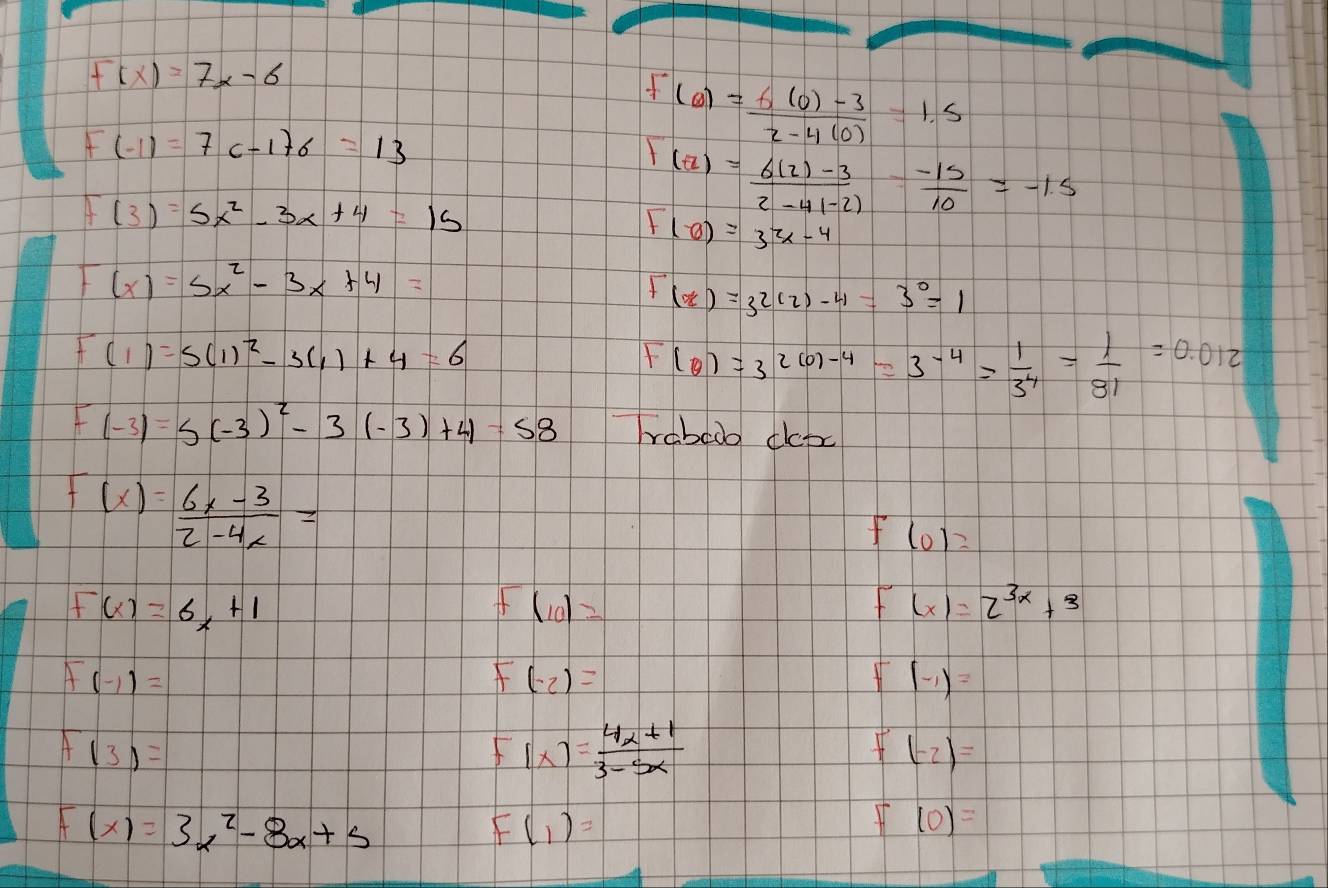 F(x) = 7x - 6
F(-1) = 7(-1)-6 = 13
F(3) = 5x² - 3x + 4 = 15
F(x) = 5x² - 3x + 4 =
F(1) = 5(1)² - 3(1) + 4 = 6
F(-3) = 5(-3)² - 3(-3) + 4 = 58
F(x) = \frac{6x - 3}{2 - 4x} =
F(0) = \frac{6(0) - 3}{2 - 4(0)} = 1.5
F(-2) = \frac{6(2) - 3}{2 - 4(-2)} = \frac{-15}{10} = -1.5
F(0) = 3^{2x - 4}
F(x) = 3^{2(2) - 4} = 3^0 = 1
F(0) = 3^{2(0) - 4} = 3^{-4} = \frac{1}{3^4} = \frac{1}{81} = 0.012
F(x) = 6x + 1
F(-1) =
F(3) =
F(x) = 3x² - 8x + 5
F(10) =
F(-2) =
F(x) = \frac{4x + 1}{3 - 5x}
F(1) =
F(0) =
F(x) = 2^{3x} + 3
F(-1) =
F(-2) =
F(0) =